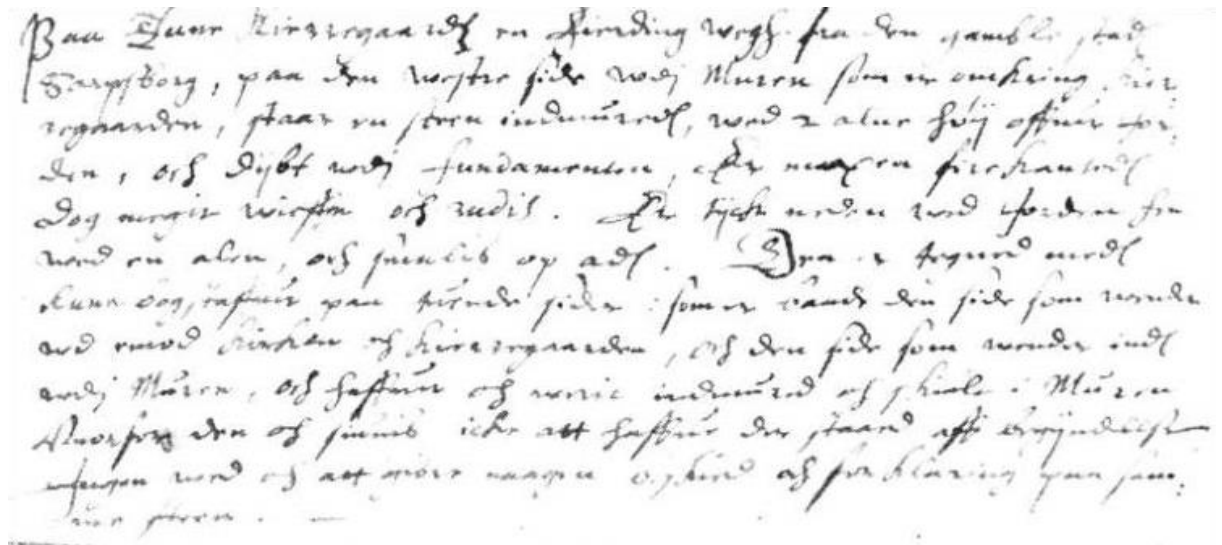 Paa Tune Kierregaardt en fierding wegh fra den gamble stad
Sarpsborg, paa den westre side udj Muren som er omkring Kier
regaarden, staar en steen indmuret, wed 2 alne høij offuer Jor,
den, och dybt udj fundamenten, Er en firkanted
dog megit och rudis. Er tyck neden wed Jorden
wed en alen, och simelis op ad. Den er tegned med
Rune bogstaffuer paa tuende sider: som er baade den side som wender
ud emod kircken och kierregaarden, och den side som wender ind
udj Muren, och haffuer och werit indmured och skiule i Muren
Huorfor den och siunis icke att haffue der staaed aff begyndelse
Ingen weed och att giøre naagen beskeed och forklaring paa sam,
me steen.